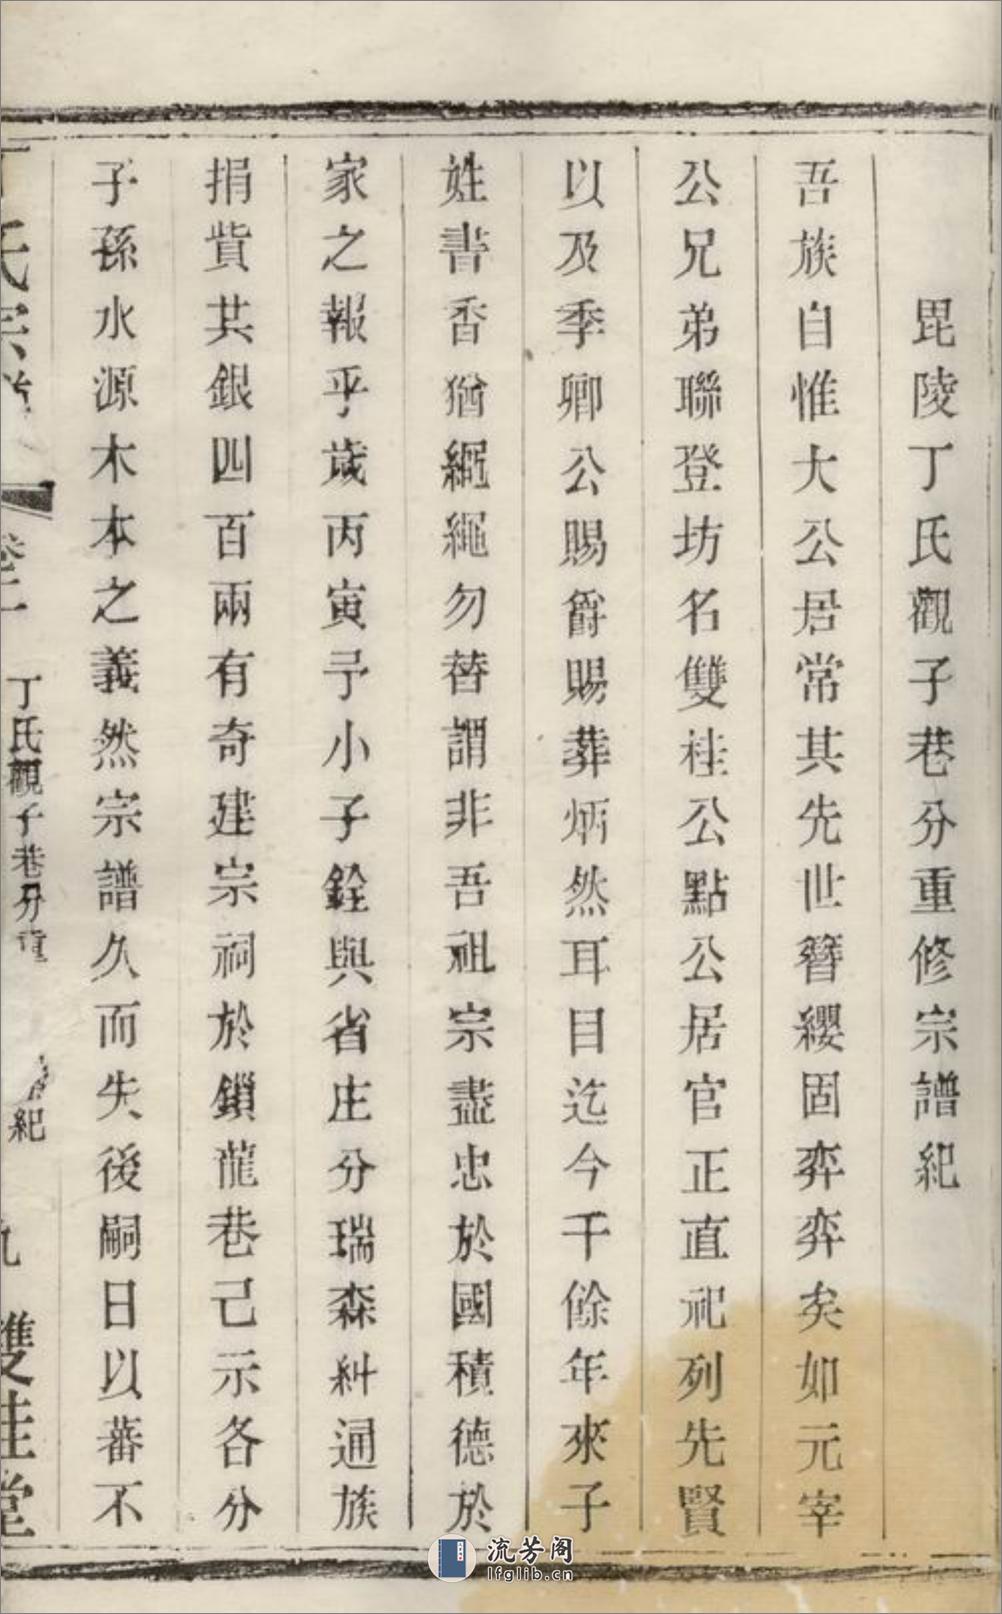 毘陵丁氏觀子巷分重修宗譜紀
吾族自惟大公居常其先世簪纓固弈弈矣如元宰
公兄弟聯登坊名雙桂公點公居官正直祀列先賢
以及季卿公賜爵賜葬炳然耳目迄今千餘年來子
姓書香猶繩繩勿替謂非吾祖宗盡忠於國積德於
家之報乎歲丙寅予小子銓與省庄分瑞森糾通族
捐貲共銀四百兩有奇建宗祠於鎖龍巷己示各分
子孫水源木本之義然宗譜久而失後嗣日以蕃不
丁氏宗譜
卷一
丁氏觀子巷分重
紀
九
雙桂堂
流芳阁
lfglib.cn